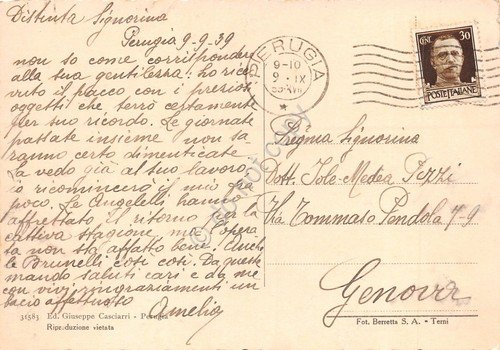 Distinta Signorina
Perugia 9-9-39
non so come corrispondere
alla sua gentilezza: ho rice
vuto il pacco con i preziosi
oggetti che terrò certamente
per suo ricordo. Le giornate
passate insieme non sa-
ranno certo dimenticate
La vedo già al suo lavoro
io ricomincerò il mio fra
poco. Le hanno
affrettato il ritorno per la
cattiva stagione, ma l'opera
ta non sta affatto bene. Anche
le Brunelli così così. Da queste
mando saluti cari e da me
con vivi ringraziamenti un
bacio affettuoso
Amelia
31583 Ed. Giuseppe Casciarri - Perugia
Riproduzione vietata
PERUGIA
9-10
9 · IX
CENT. 30
POSTE ITALIANE
Pregma Signorina
Dott. Medea Pezzi
Via Tommaso Pendola 7-9
Genova
Fot. Berretta S. A. - Terni